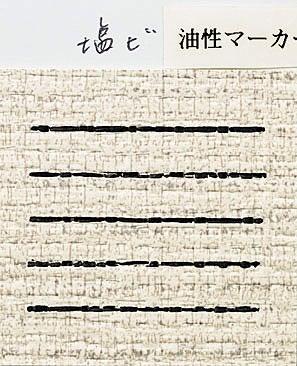 塩ビ 油性マーカー